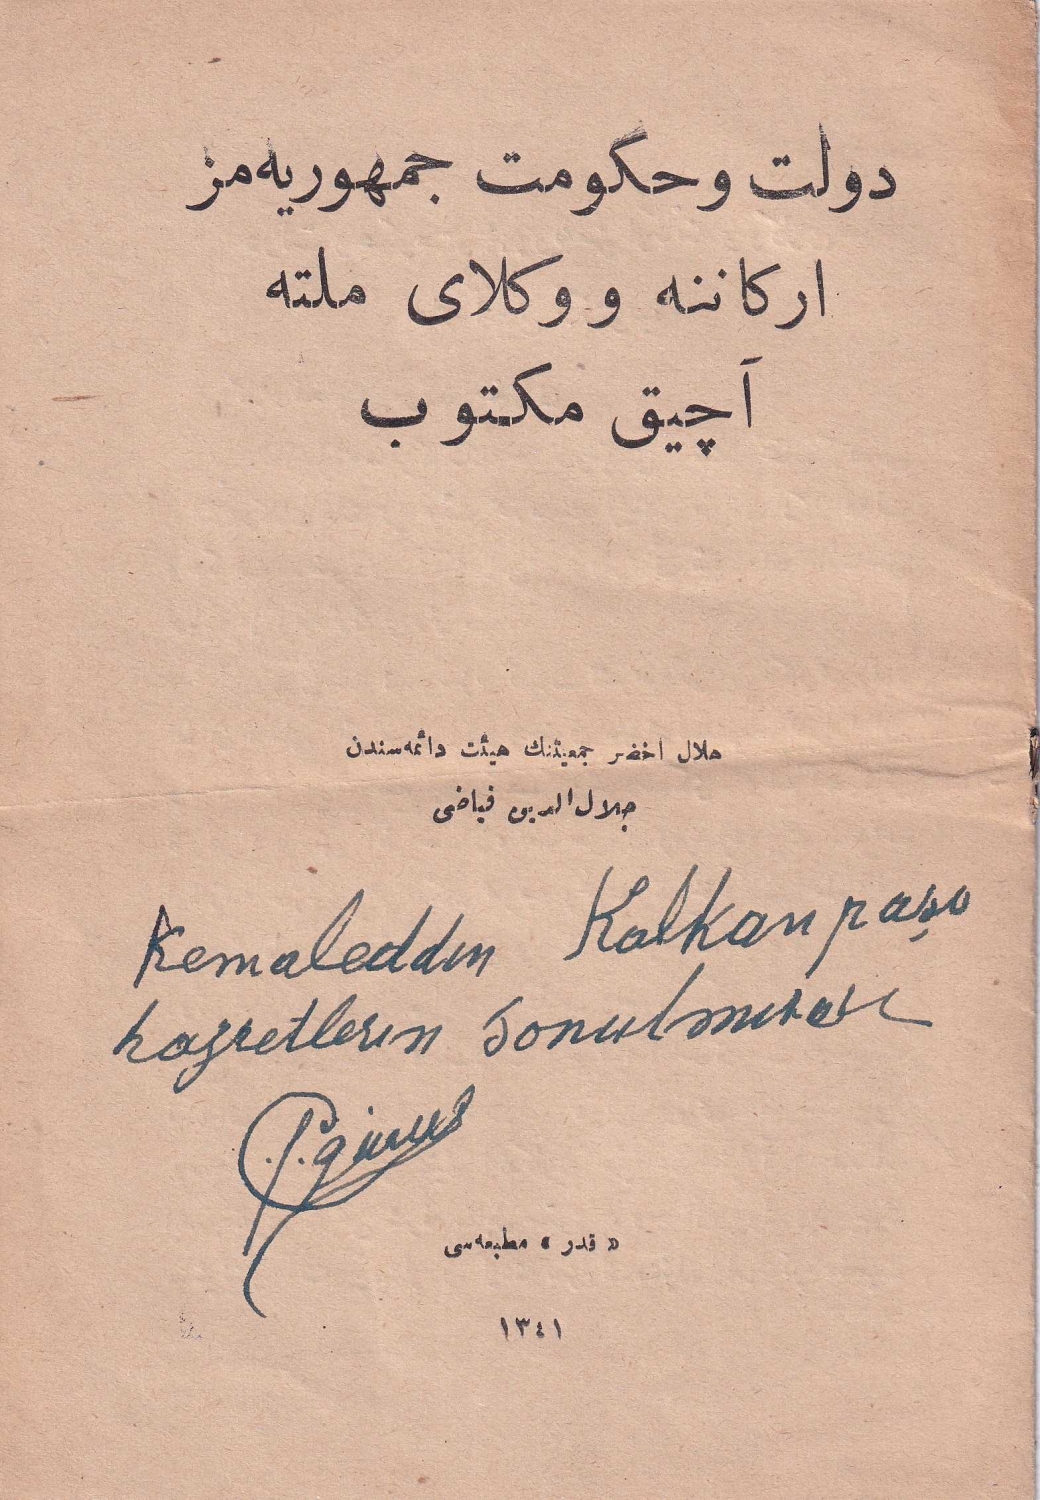 دولت وحكومت جمهوریه‌مز
اركاننه و وكلای ملته
آچیق مكتوب
هلال اخضر جمعیتنك هیئت دائمه‌سندن
جلال‌الدین فیاضی
Kemaleddin Kalkan paşa
hazretlerin sonulmuştur
« قدر » مطبعه‌سی
١٣٤١